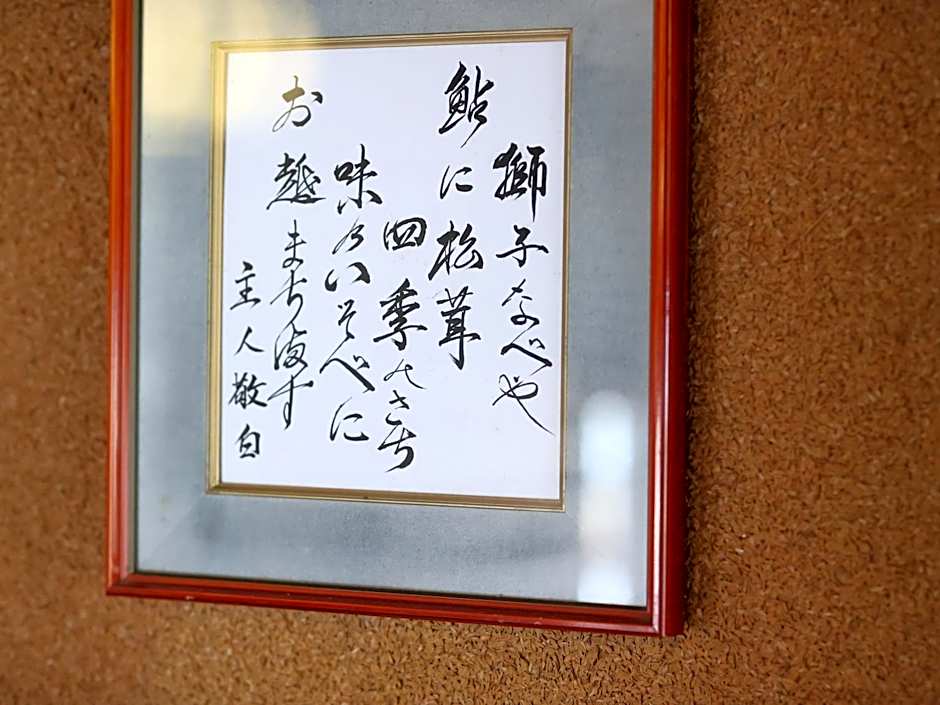 獅子なべや
鮎に松茸
四季のさち
味のいそべに
お越まちます
主人敬白